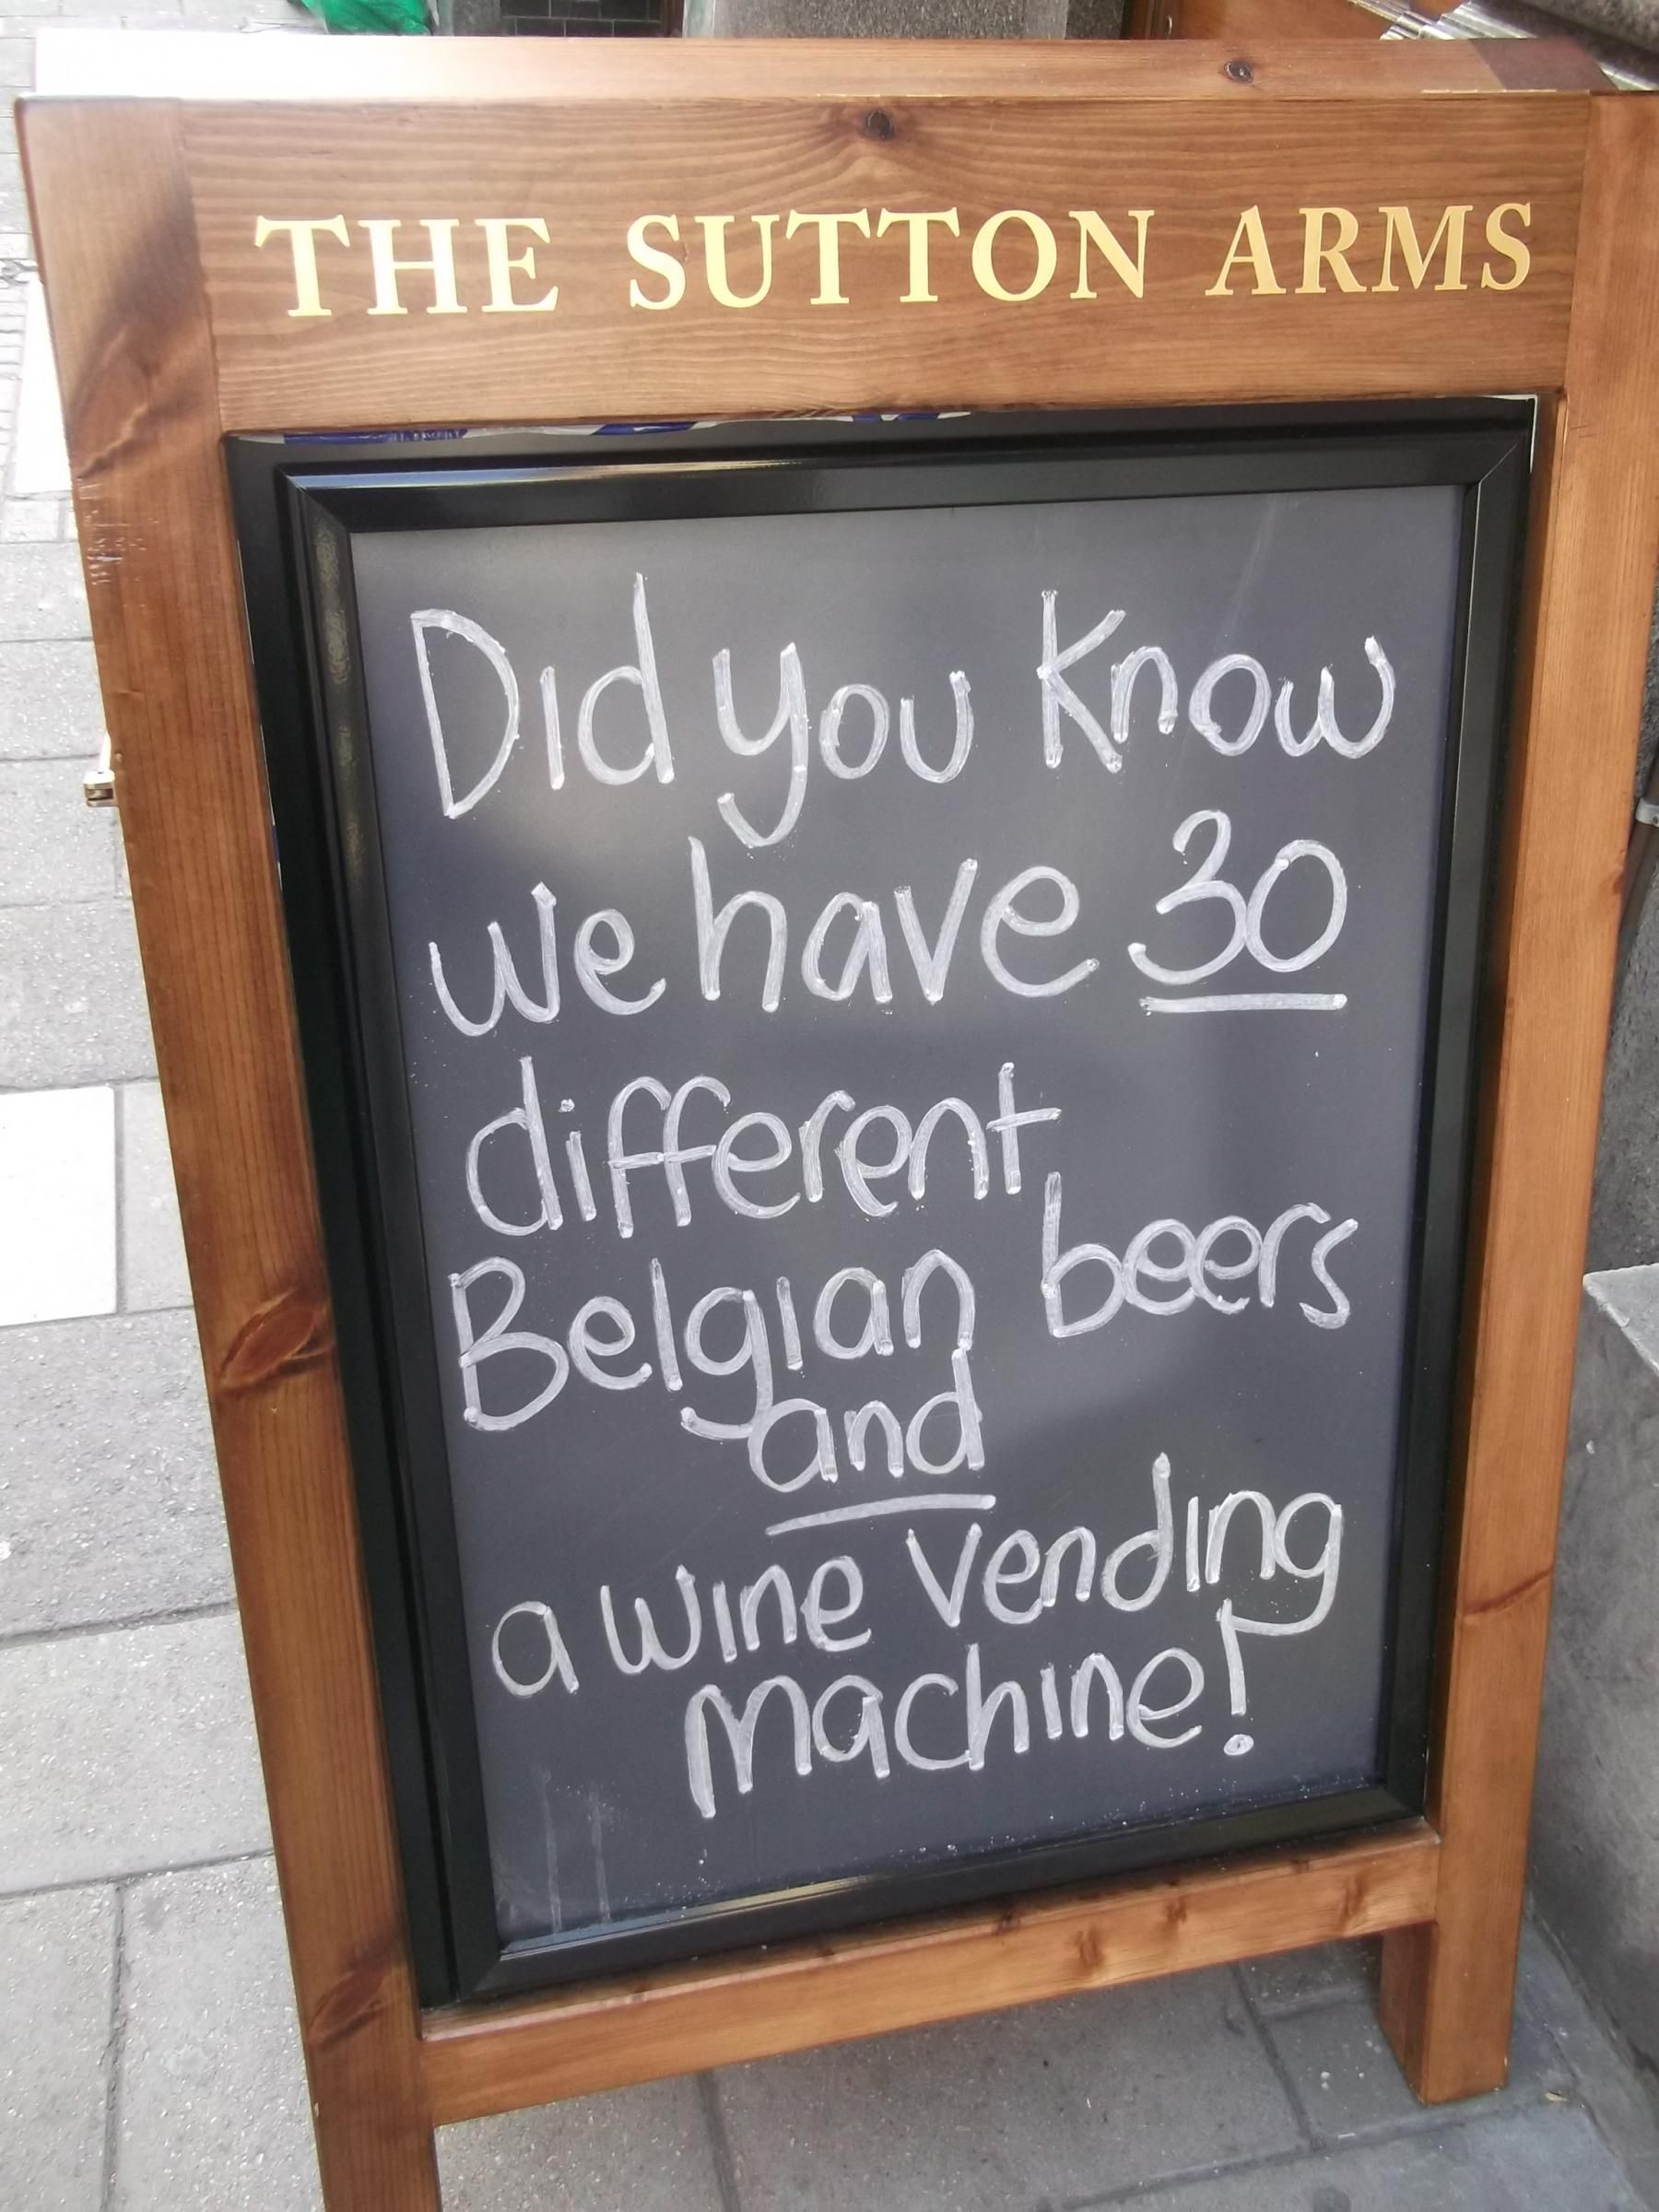 THE SUTTON ARMS
Did you know
we have 30
different
Belgian beers
and
a wine vending
machine!